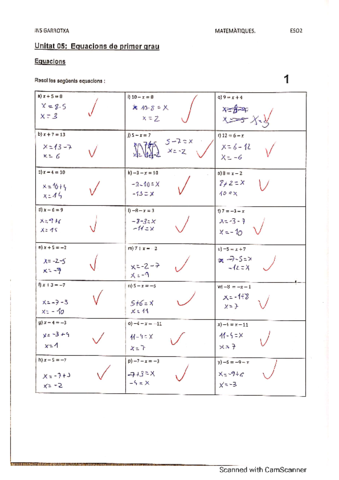 INS GARROTXA MATEMÀTIQUES. ESO2
Unitat 05: Equacions de primer grau
Equacions
Resol les següents equacions :
1
a) x + 5 = 8
x = 8-5
x = 3
i) 10 – x = 8
10-8 = x
x = 2
b) x + 7 = 13
x = 13-7
x = 6
j) 5 – x = 7
5-7=x
x=-2
r) 12 = 6 – x
x = 6-12
x = -6
c) x – 4 = 10
x=10+4
x=14
k) –3 – x = 10
-3-10=x
-13=x
s) 8 = x – 2
8+2=x
10=x
l) –8 – x = 3
-8-3=x
-11=x
t) 7 = –3 – x
x=-3-7
x=-10
x=-2-7
x=-9
-7-5=x
-12=x
f) x + 3 = –7
x=-7-3
x=-10
n) 5 – x = –6
5+6=x
x=11
x=-1+8
x=7
g) x – 4 = –3
x=-3+4
x=1
o) –4 – x = –11
11-4=x
x=7
x) –4 = x – 11
11-4=x
x=7
p) –7 – x = –3
-7+3=x
-4=x
y) –6 = –9 – x
x=-9+6
x=-3
x=-2
Scanned with CamScanner